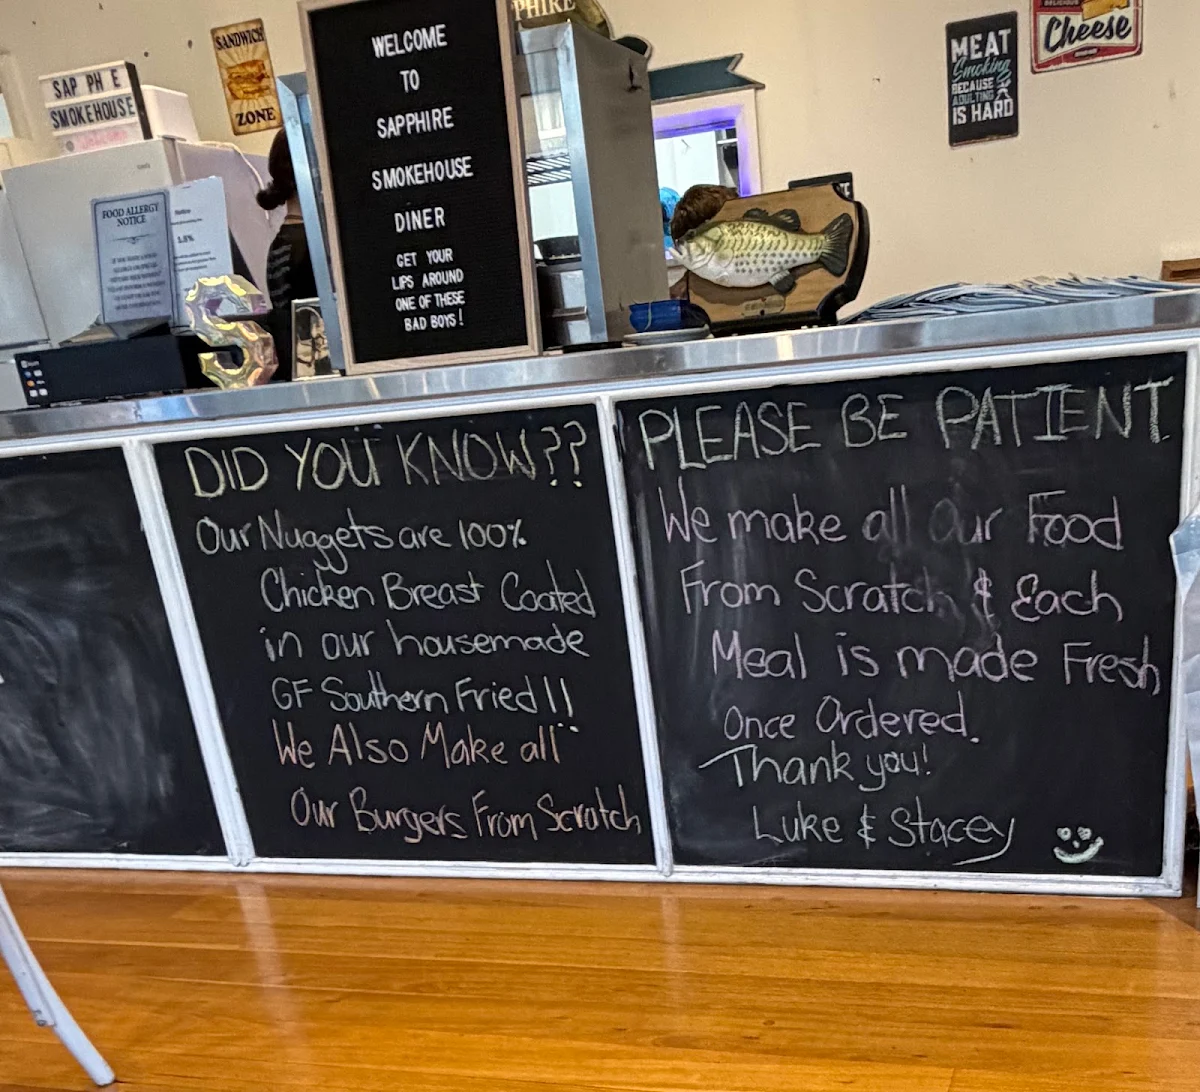 SANDWICH
ZONE
SAP PH E
SMOKEHOUSE
FOOD ALLERGY
NOTICE
Notice
1.5%
WELCOME
TO
SAPPHIRE
SMOKEHOUSE
DINER
GET YOUR
LIPS AROUND
ONE OF THESE
BAD BOYS!
PHIRE
MEAT
Smoking
BECAUSE
ADULTING
IS HARD
DELICIOUS
Cheese
DID YOU KNOW??
Our Nuggets are 100%
Chicken Breast Coated
in our housemade
GF Southern Fried!!
We Also Make all
Our Burgers From Scratch
PLEASE BE PATIENT.
We make all our Food
From Scratch & Each
Meal is made Fresh
Once Ordered.
Thank you!
Luke & Stacey